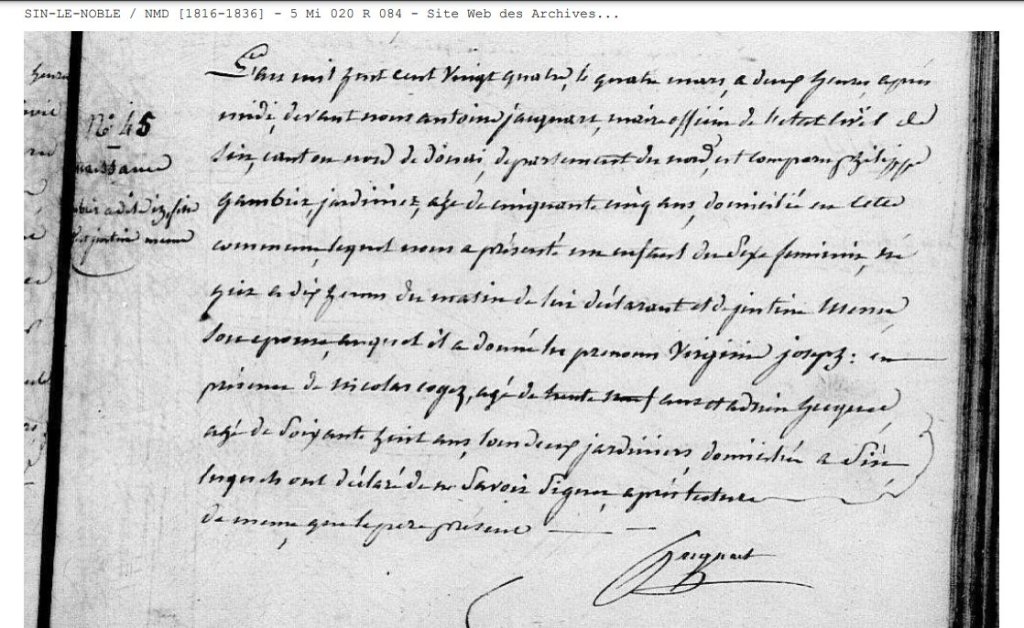 SIN-LE-NOBLE / NMD [1816-1836] - 5 Mi 020 R 084 - Site Web des Archives...
L'an mil huit cent vingt quatre, le quatre mars, a deux heures après
midi, devant nous antoine jacquart, maire officier de l'état civil de
Sin, canton nord de douai, département du nord, est comparu philippe
gambiez, jardinier, agé de cinquante cinq ans, domicilié en cette
commune, lequel nous a présenté un enfant du sexe feminin, né
hier a dix heures du matin de lui déclarant et de justine
Son epouse, auquel il a donné les prenoms Virginie joseph: en
présence de nicolas cogez, agé de trente neuf ans et adrien hecquet
agé de Soixante huit ans, tous deux jardiniers domiciliés a Sin
lesquels ont déclaré de ne Savoir Signer, après lecture
de meme que le pere présent
Jacquart
N° 45
naissance
justine